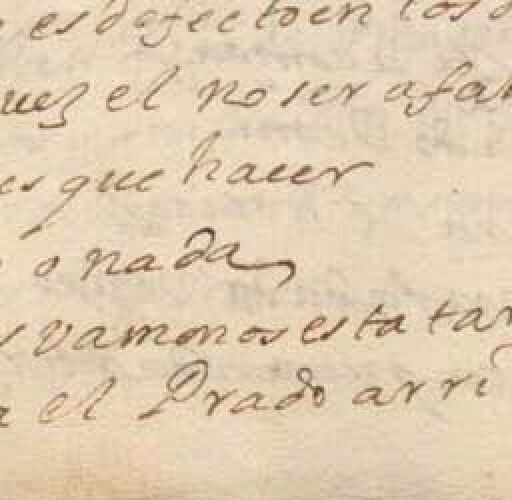 es defecto en los
uez el no ser afa
es que hacer
o nada
s vamonos esta tar
a el Prado arri